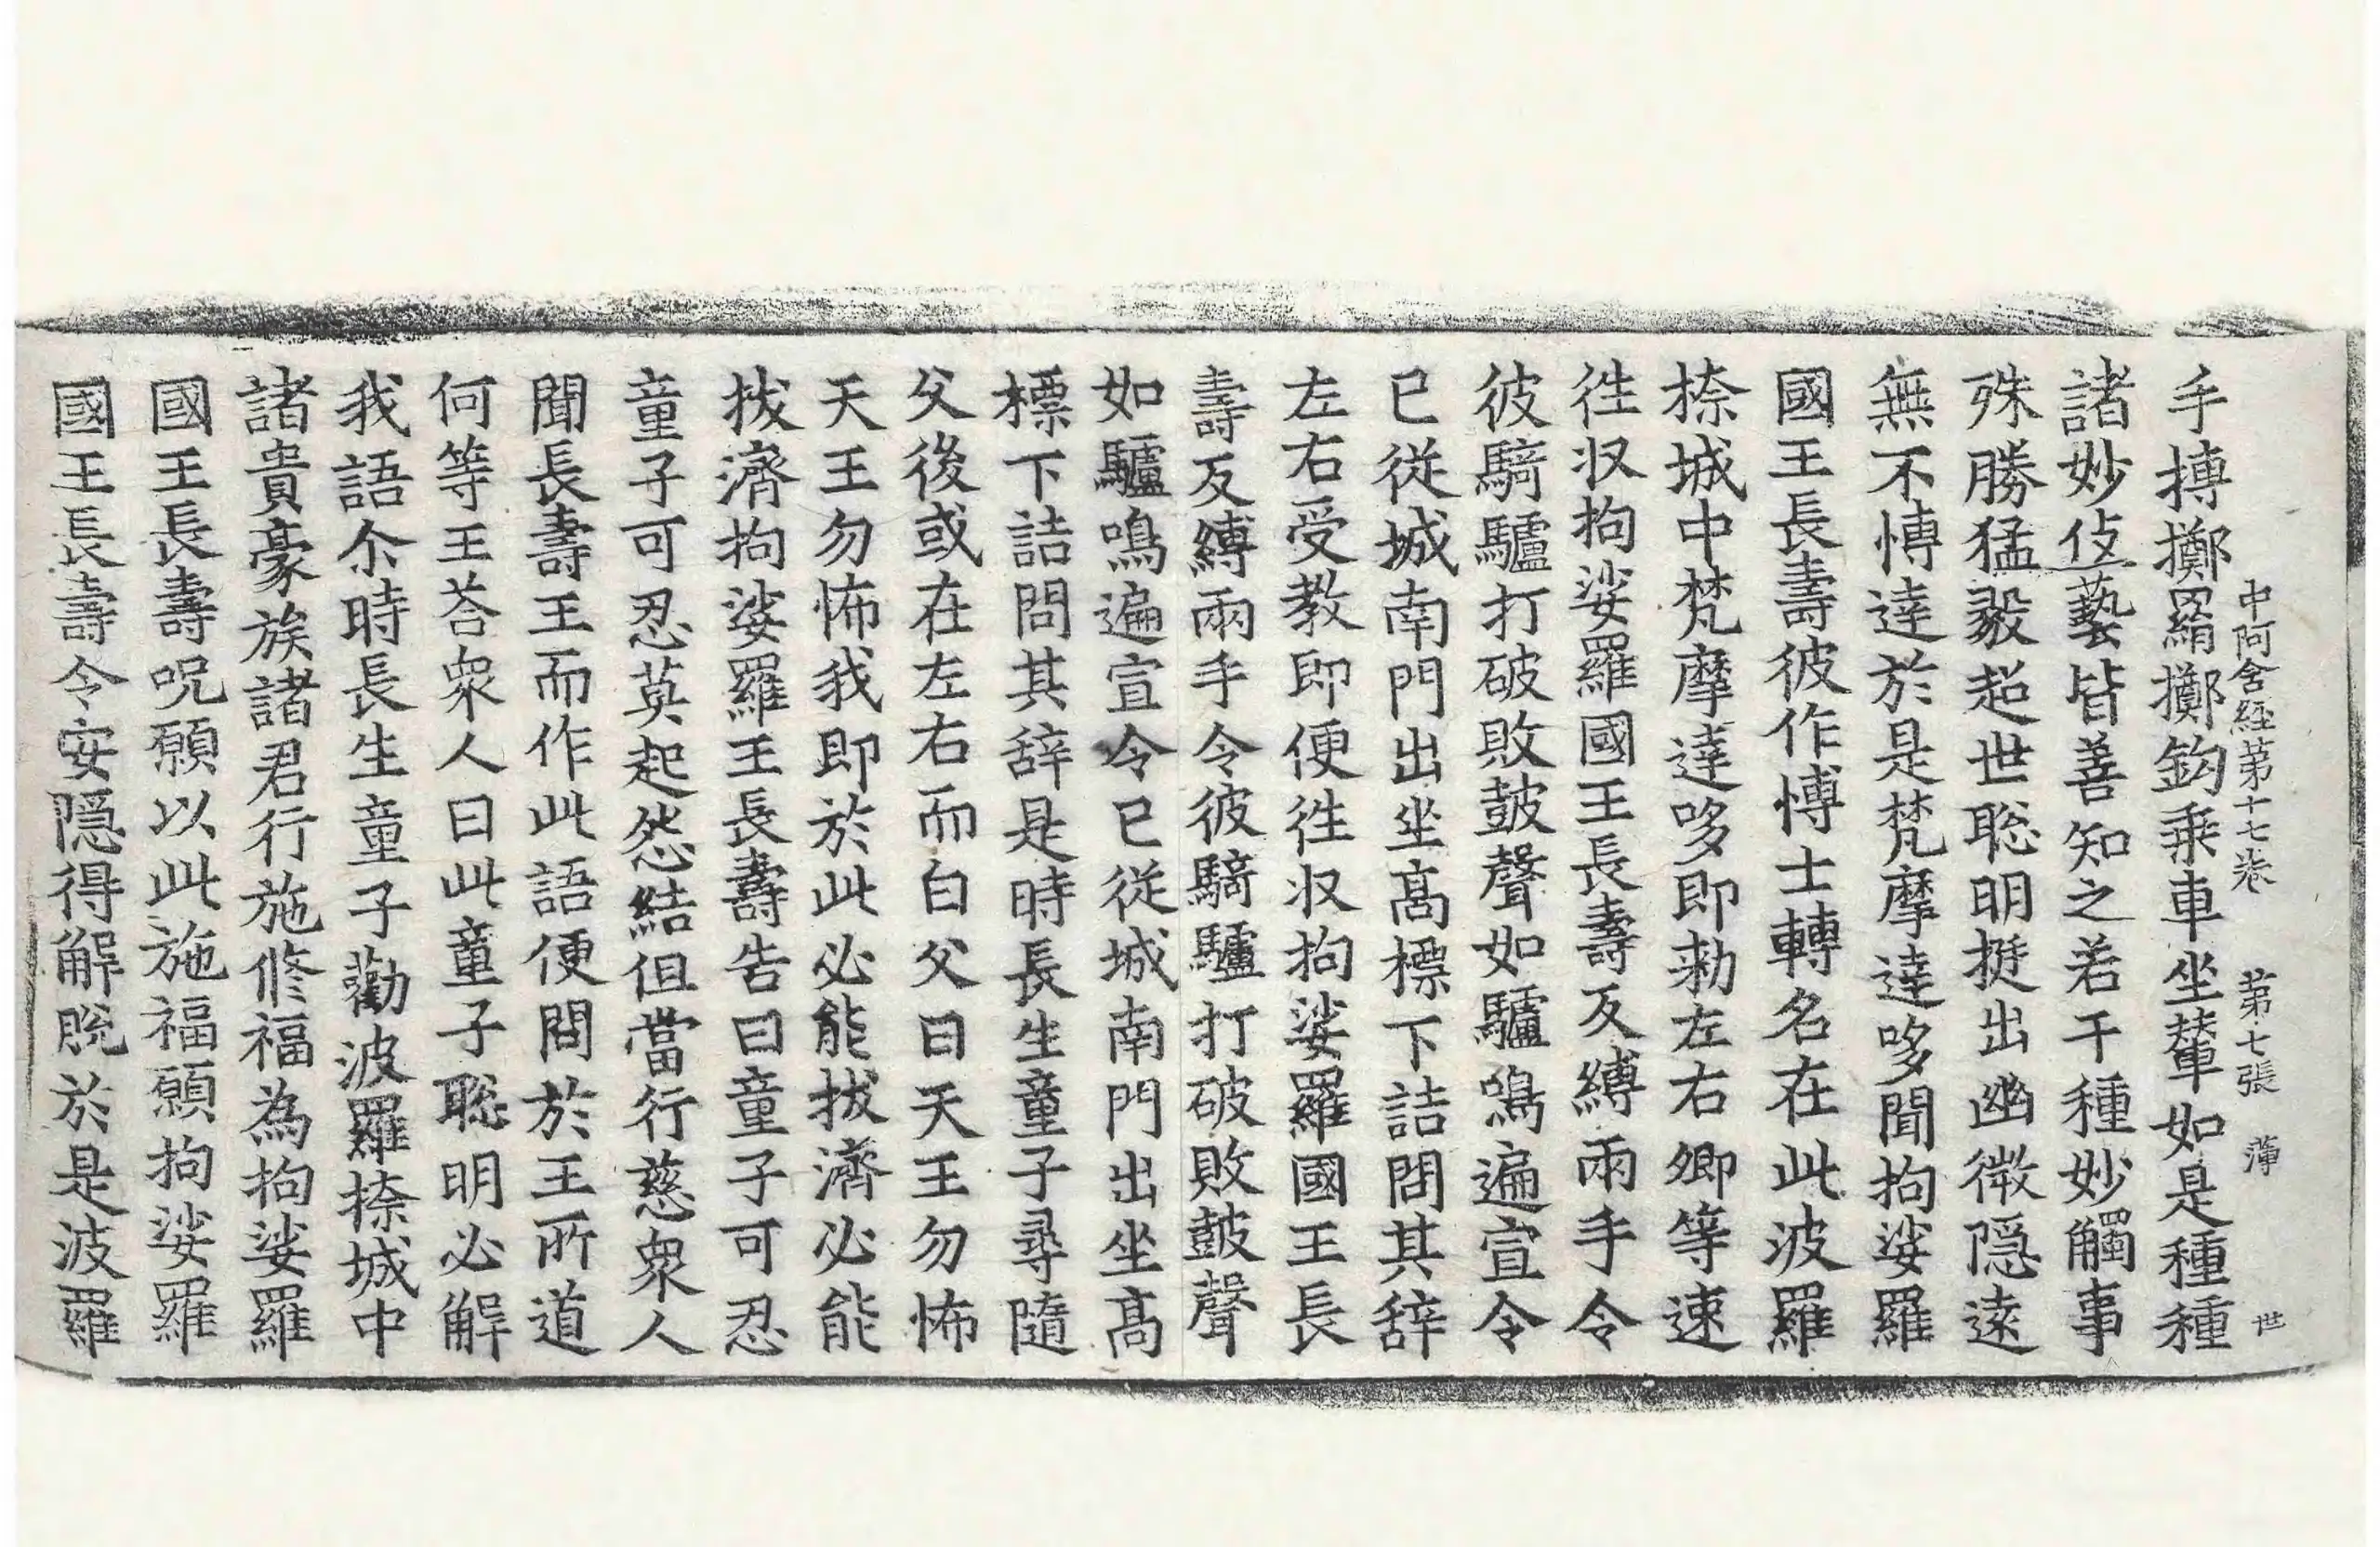 中阿含経第十七卷 第七張 薄 世
手搏擲羂擲鈎乗車坐輦如是種種
諸妙伎藝皆善知之若干種妙觸事
殊勝猛毅超世聡明挺出幽徴隠遠
無不愽達於是梵摩達哆聞拘娑羅
國王長壽彼作愽士轉名在此波羅
捺城中梵摩達哆即勑左右卿等速
徃収拘娑羅國王長壽反縛兩手令
彼騎驢打破敗鼓聲如驢鳴遍宣令
已從城南門出坐髙標下詰問其辝
左右受教即便徃収拘娑羅國王長
壽反縛兩手令彼騎驢打破敗鼓聲
如驢鳴遍宣令已從城南門出坐髙
標下詰問其辝是時長生童子尋隨
父後或在左右而白父曰天王勿怖
天王勿怖我即於此必能拔濟必能
拔濟拘娑羅王長壽告曰童子可忍
童子可忍莫起怨結但當行慈衆人
聞長壽王而作此語便問於王所道
何等王荅衆人曰此童子聡明必解
我語尒時長生童子勸波羅捺城中
諸貴豪族諸君行施修福為拘娑羅
國王長壽呪願以此施福願拘娑羅
國王長壽令安隠得解脫於是波羅